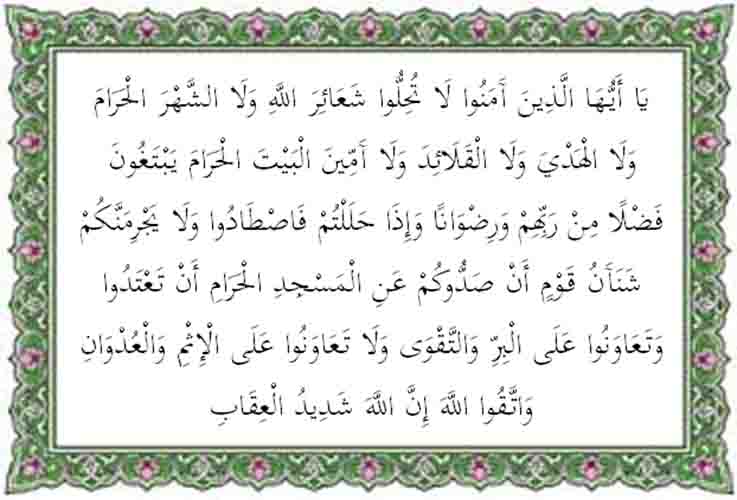 يَا أَيُّهَا الَّذِينَ آَمَنُوا لَا تُحِلُّوا شَعَائِرَ اللَّهِ وَلَا الشَّهْرَ الْحَرَامَ
وَلَا الْهَدْيَ وَلَا الْقَلَائِدَ وَلَا آَمِّينَ الْبَيْتَ الْحَرَامَ يَبْتَغُونَ
فَضْلًا مِنْ رَبِّهِمْ وَرِضْوَانًا وَإِذَا حَلَلْتُمْ فَاصْطَادُوا وَلَا يَجْرِمَنَّكُمْ
شَنَآَنُ قَوْمٍ أَنْ صَدُّوكُمْ عَنِ الْمَسْجِدِ الْحَرَامِ أَنْ تَعْتَدُوا
وَتَعَاوَنُوا عَلَى الْبِرِّ وَالتَّقْوَى وَلَا تَعَاوَنُوا عَلَى الْإِثْمِ وَالْعُدْوَانِ
وَاتَّقُوا اللَّهَ إِنَّ اللَّهَ شَدِيدُ الْعِقَابِ